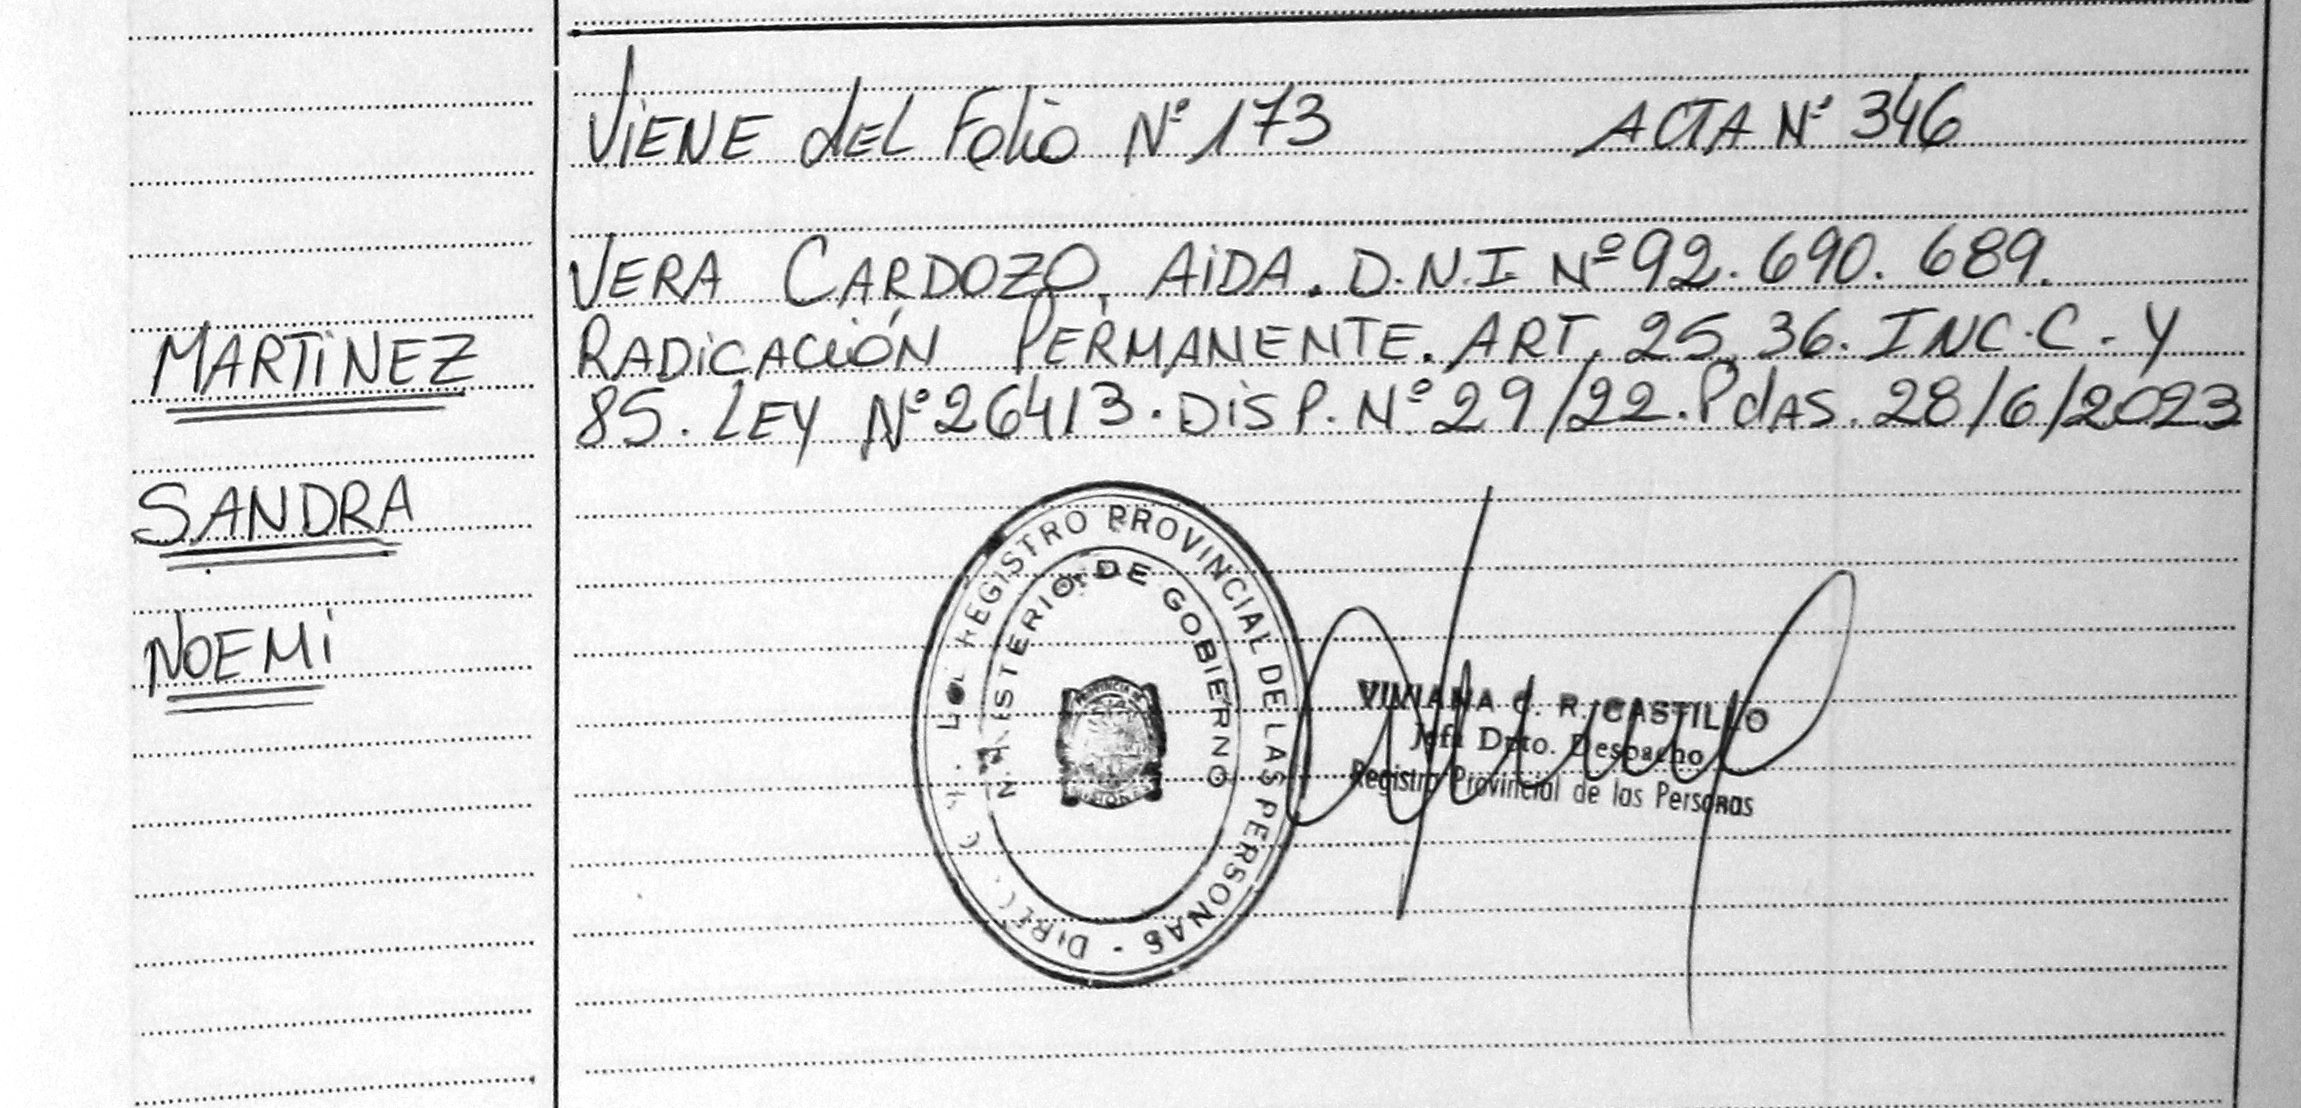 VIENE DEL Folio Nº 173 ACTA Nº 346
VERA CARDOZO, AIDA. D.N.I Nº 92.690.689.
RADICACIÓN PERMANENTE. ART. 25, 36. INC. C. Y
85. LEY Nº 26413. DISP. Nº 29/22. PdAS. 28/6/2023
MARTINEZ
SANDRA
NOEMI
REGISTRO PROVINCIAL DE LAS PERSONAS -
MINISTERIO DE GOBIERNO
VIVIANA C. R. CASTILLO
Jefa Dpto. Despacho
Registro Provincial de las Personas